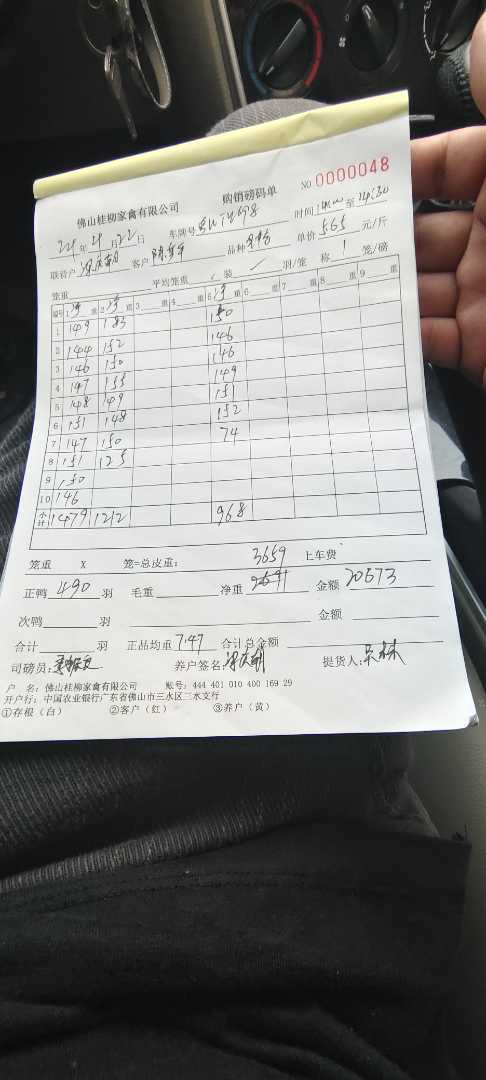 佛山桂柳家禽有限公司 购销磅码单 NO 0000048
24年4月22日 车牌号 时间 至 14:30
联营户 客户 品种 单价 5.65 元/斤
笼重 平均笼重 装 羽/笼 称 1 笼/磅
编号 1净重 2净重 3 重 4 重 5净重 6 重 7 重 8 重 9 重
1 149 183 150
2 144 152 146
3 146 150 146
4 147 155 149
5 148 149 151
6 151 148 152
7 147 150 74
8 151 125
9 150
10 146
小计 1479 1212 968
笼重 X 笼=总皮重: 3659 上车费
正鸭 490 羽 毛重 净重 金额 20673
次鸭 羽 金额
合计 羽 正品均重 7.47 合计总金额
司磅员: 养户签名: 提货人:
户 名: 佛山桂柳家禽有限公司 账号: 444 401 010 400 169 29
开户行: 中国农业银行广东省佛山市三水区三水支行
①存根(白) ②客户(红) ③养户(黄)